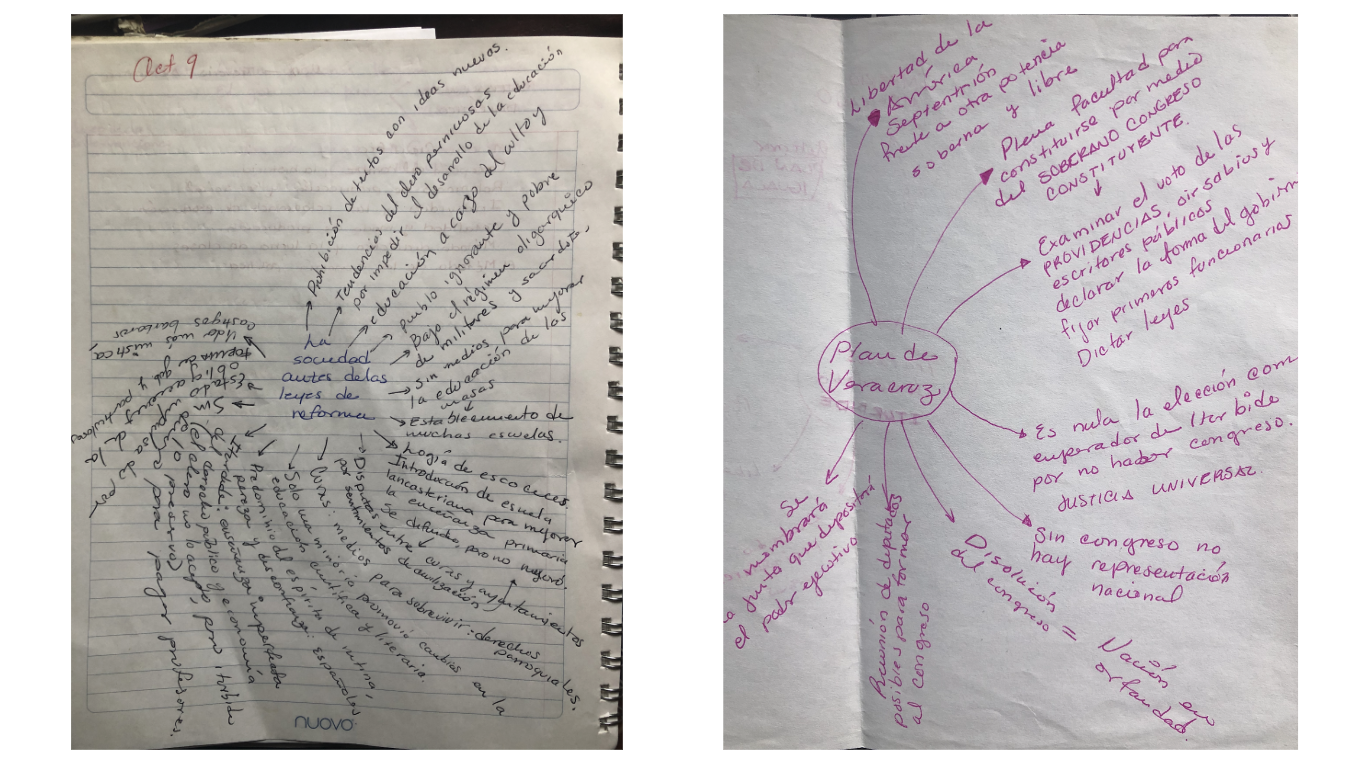 Act 9
La
sociedad
antes de las
leyes de
reforma
Prohibición de textos con ideas nuevas.
Tendencias del clero perniciosas
por impedir el desarrollo de la educación
educación a cargo del culto y
pueblo ignorante y pobre
Bajo el régimen oligarquico
de militares y sacerdotes.
Sin medios para mejorar
la educación de las
masas
Establecimiento de
muchas escuelas.
Logia de escoceces.
Introducción de escuela
lancasteriana para mejorar
la enceñanza primaria
Se defundio, pero no mejoró.
Disputas entre curas y ayuntamientos
por sentimientos de civilización
Curas: medios para sobrevivir: derechos
parroquiales.
Solo una minoria promovió cambios en la
educación cientifica y literaria.
Predominio del espiritu de rutina,
pereza y desconfianza: Españoles
Iturbide: enseñanza imperfecta
del derecho público y economía
(el clero no lo aceptó, pero Iturbide
Sin
Estado
obligaciones de la
vida más mistica,
castigos barbaros
para pagar profesores.
particulares
nuovo
Plan de
Veracruz
Libertad de la
América
Septentrión
frente a otra potencia
soberna y libre
Plena facultad para
constituirse por medio
del SOBERANO CONGRESO
CONSTITUYENTE.
Examinar el voto de las
PROVIDENCIAS, oir sabios y
escritores públicos
declarar la forma del gobiern
fijar primeros funcionarias
Dictar leyes
Es nula la elección com
emperador de Iturbide
por no haber congreso.
JUSTICIA UNIVERSAL.
Sin congreso no
hay representación
nacional
Disolución
del congreso = Nación en
orfandad.
Reunión de diputados
posibles para formar
al congreso
Se
nombrará
a junta que depositará
el poder ejecutivo